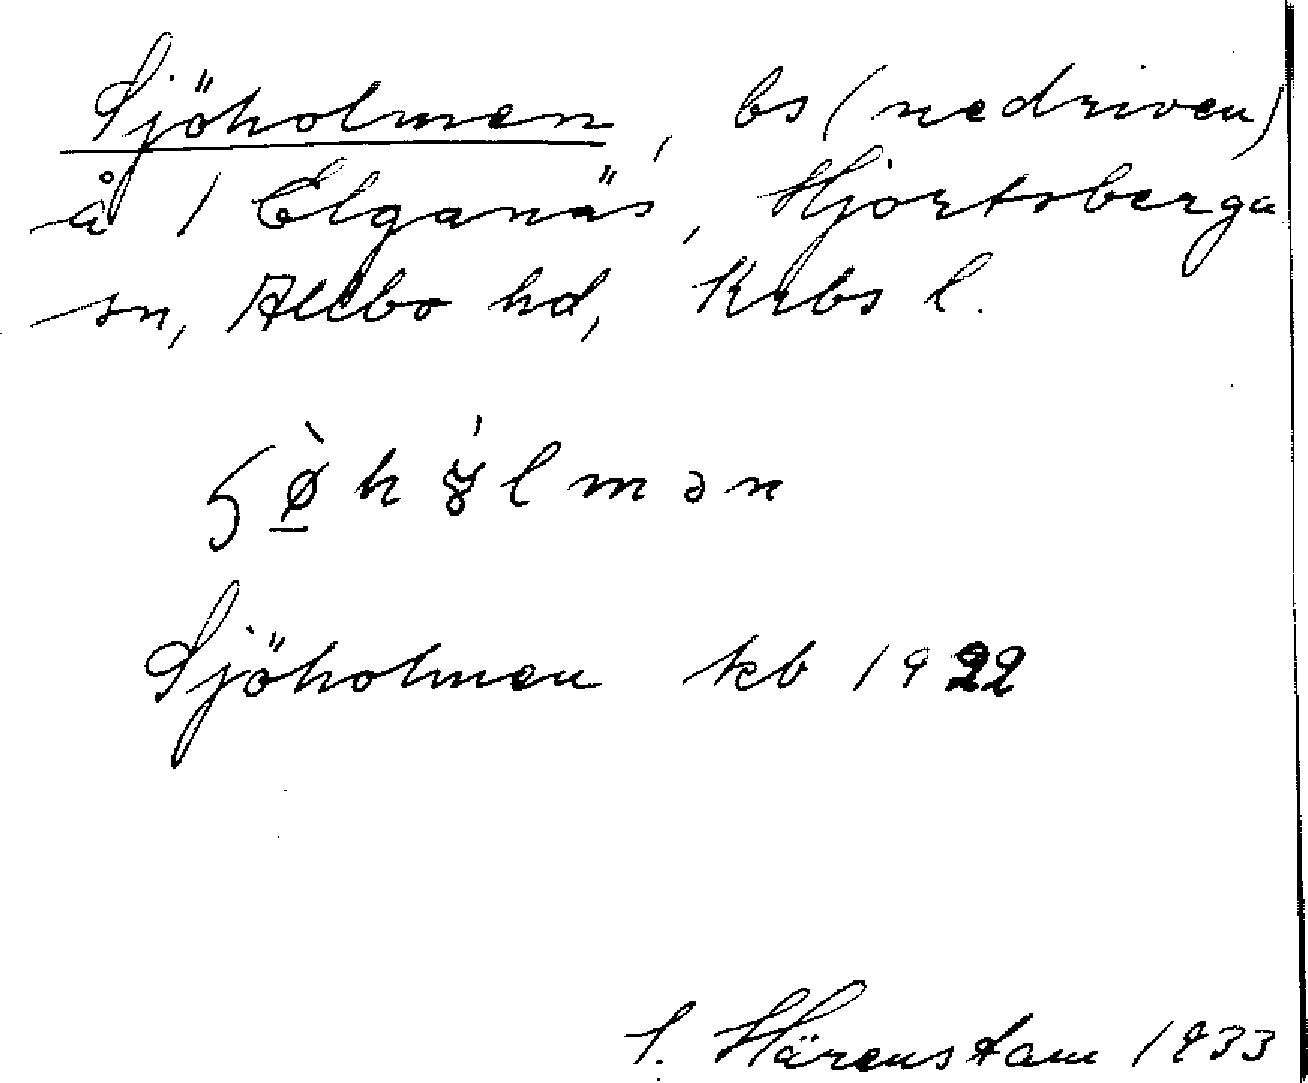 Sjöholmen, bs (nedriven)
å 1 Elganäs, Hjortsberga
sn, Allbo hd, Krbs l.
Sjöholmen kb 1922
Härenstam 1933